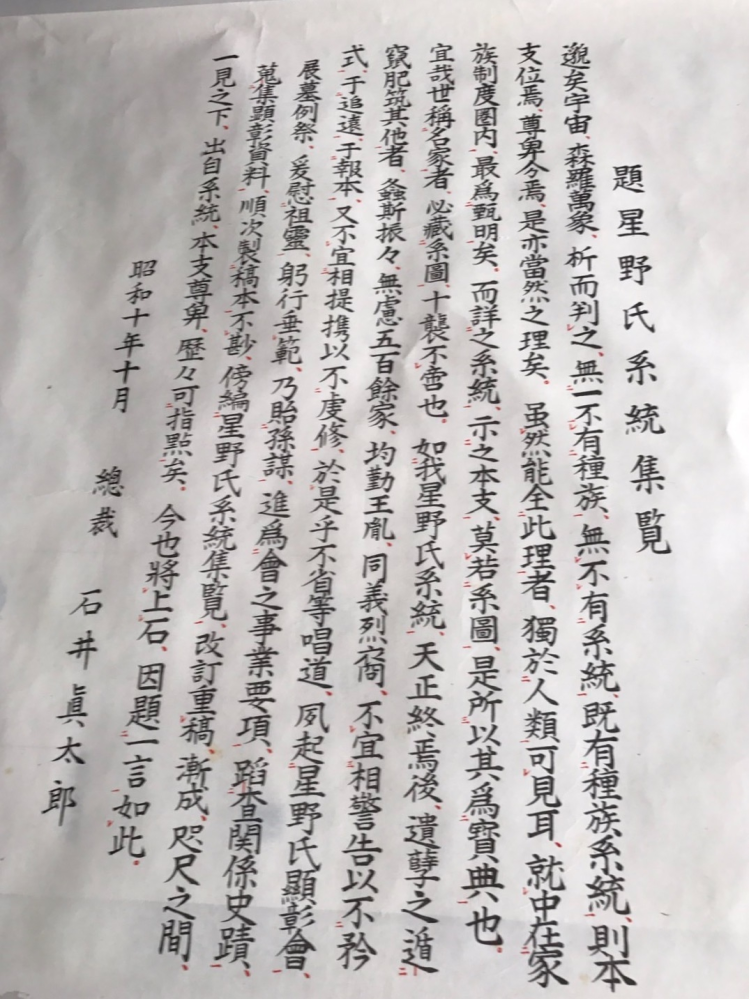 題星野氏系統集覧
邈矣宇宙、森羅萬象、析而判之、無一不有種族、無不有系統、既有種族系統、則本
支位焉、尊卑分焉、是亦當然之理矣、虽然能全此理者、獨於人類可見耳、就中在家
族制度圏内、最爲甄明矣、而詳之系統、示之本支、莫若系圖、是所以其爲寳典也、
宜哉世稱名家者、必藏系圖、十襲不啻也、如我星野氏系統、天正終焉後、遺孽之遁
竄肥筑其他者、螽斯振々、無慮五百餘家、均勤王胤、同義烈裔、不宜相警告以不矜
式、于追遠、于報本、又不宜相提携以不虔修、於是乎不省等唱道、夙起星野氏顕彰會、
展墓例祭、爰慰祖靈、躬行垂範、乃貽孫謀、進爲會之事業要項、蹈査関係史蹟、
蒐集顕彰資料、順次製稿本不尠、傍編星野氏系統集覧、改訂重稿、漸成、咫尺之間、
一見之下、出自系統、本支尊卑、歴々可指點矣、今也將上石、因題一言如此、
昭和十年十月 總裁 石井眞太郎